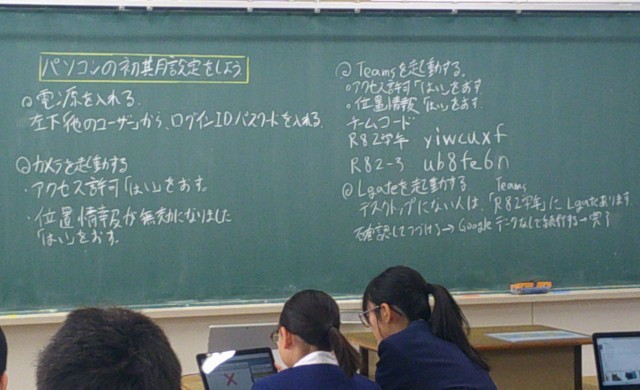 パソコンの初期設定をしよう
①電源を入れる
左下「他のユーザー」から、ログインID パスワードを入れる
②カメラを起動する
・アクセス許可「はい」をおす。
・位置情報が無効になりました
「はい」をおす。
③Teamsを起動する。
・アクセス許可「はい」をおす
・位置情報「はい」をおす。
チームコード
R82学年 yiwcuxf
R82-3 ub8fe6n
④Lgateを起動する
デスクトップにない人は、Teams「R82学年」にLgateあります
確認してつづける→Googleデータなしで続行する→完了